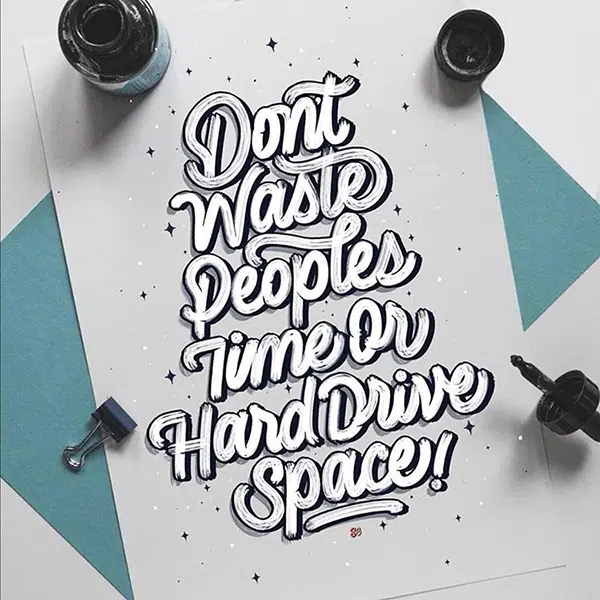 Dont
Waste
Peoples
Time Or
Hard Drive
Space!